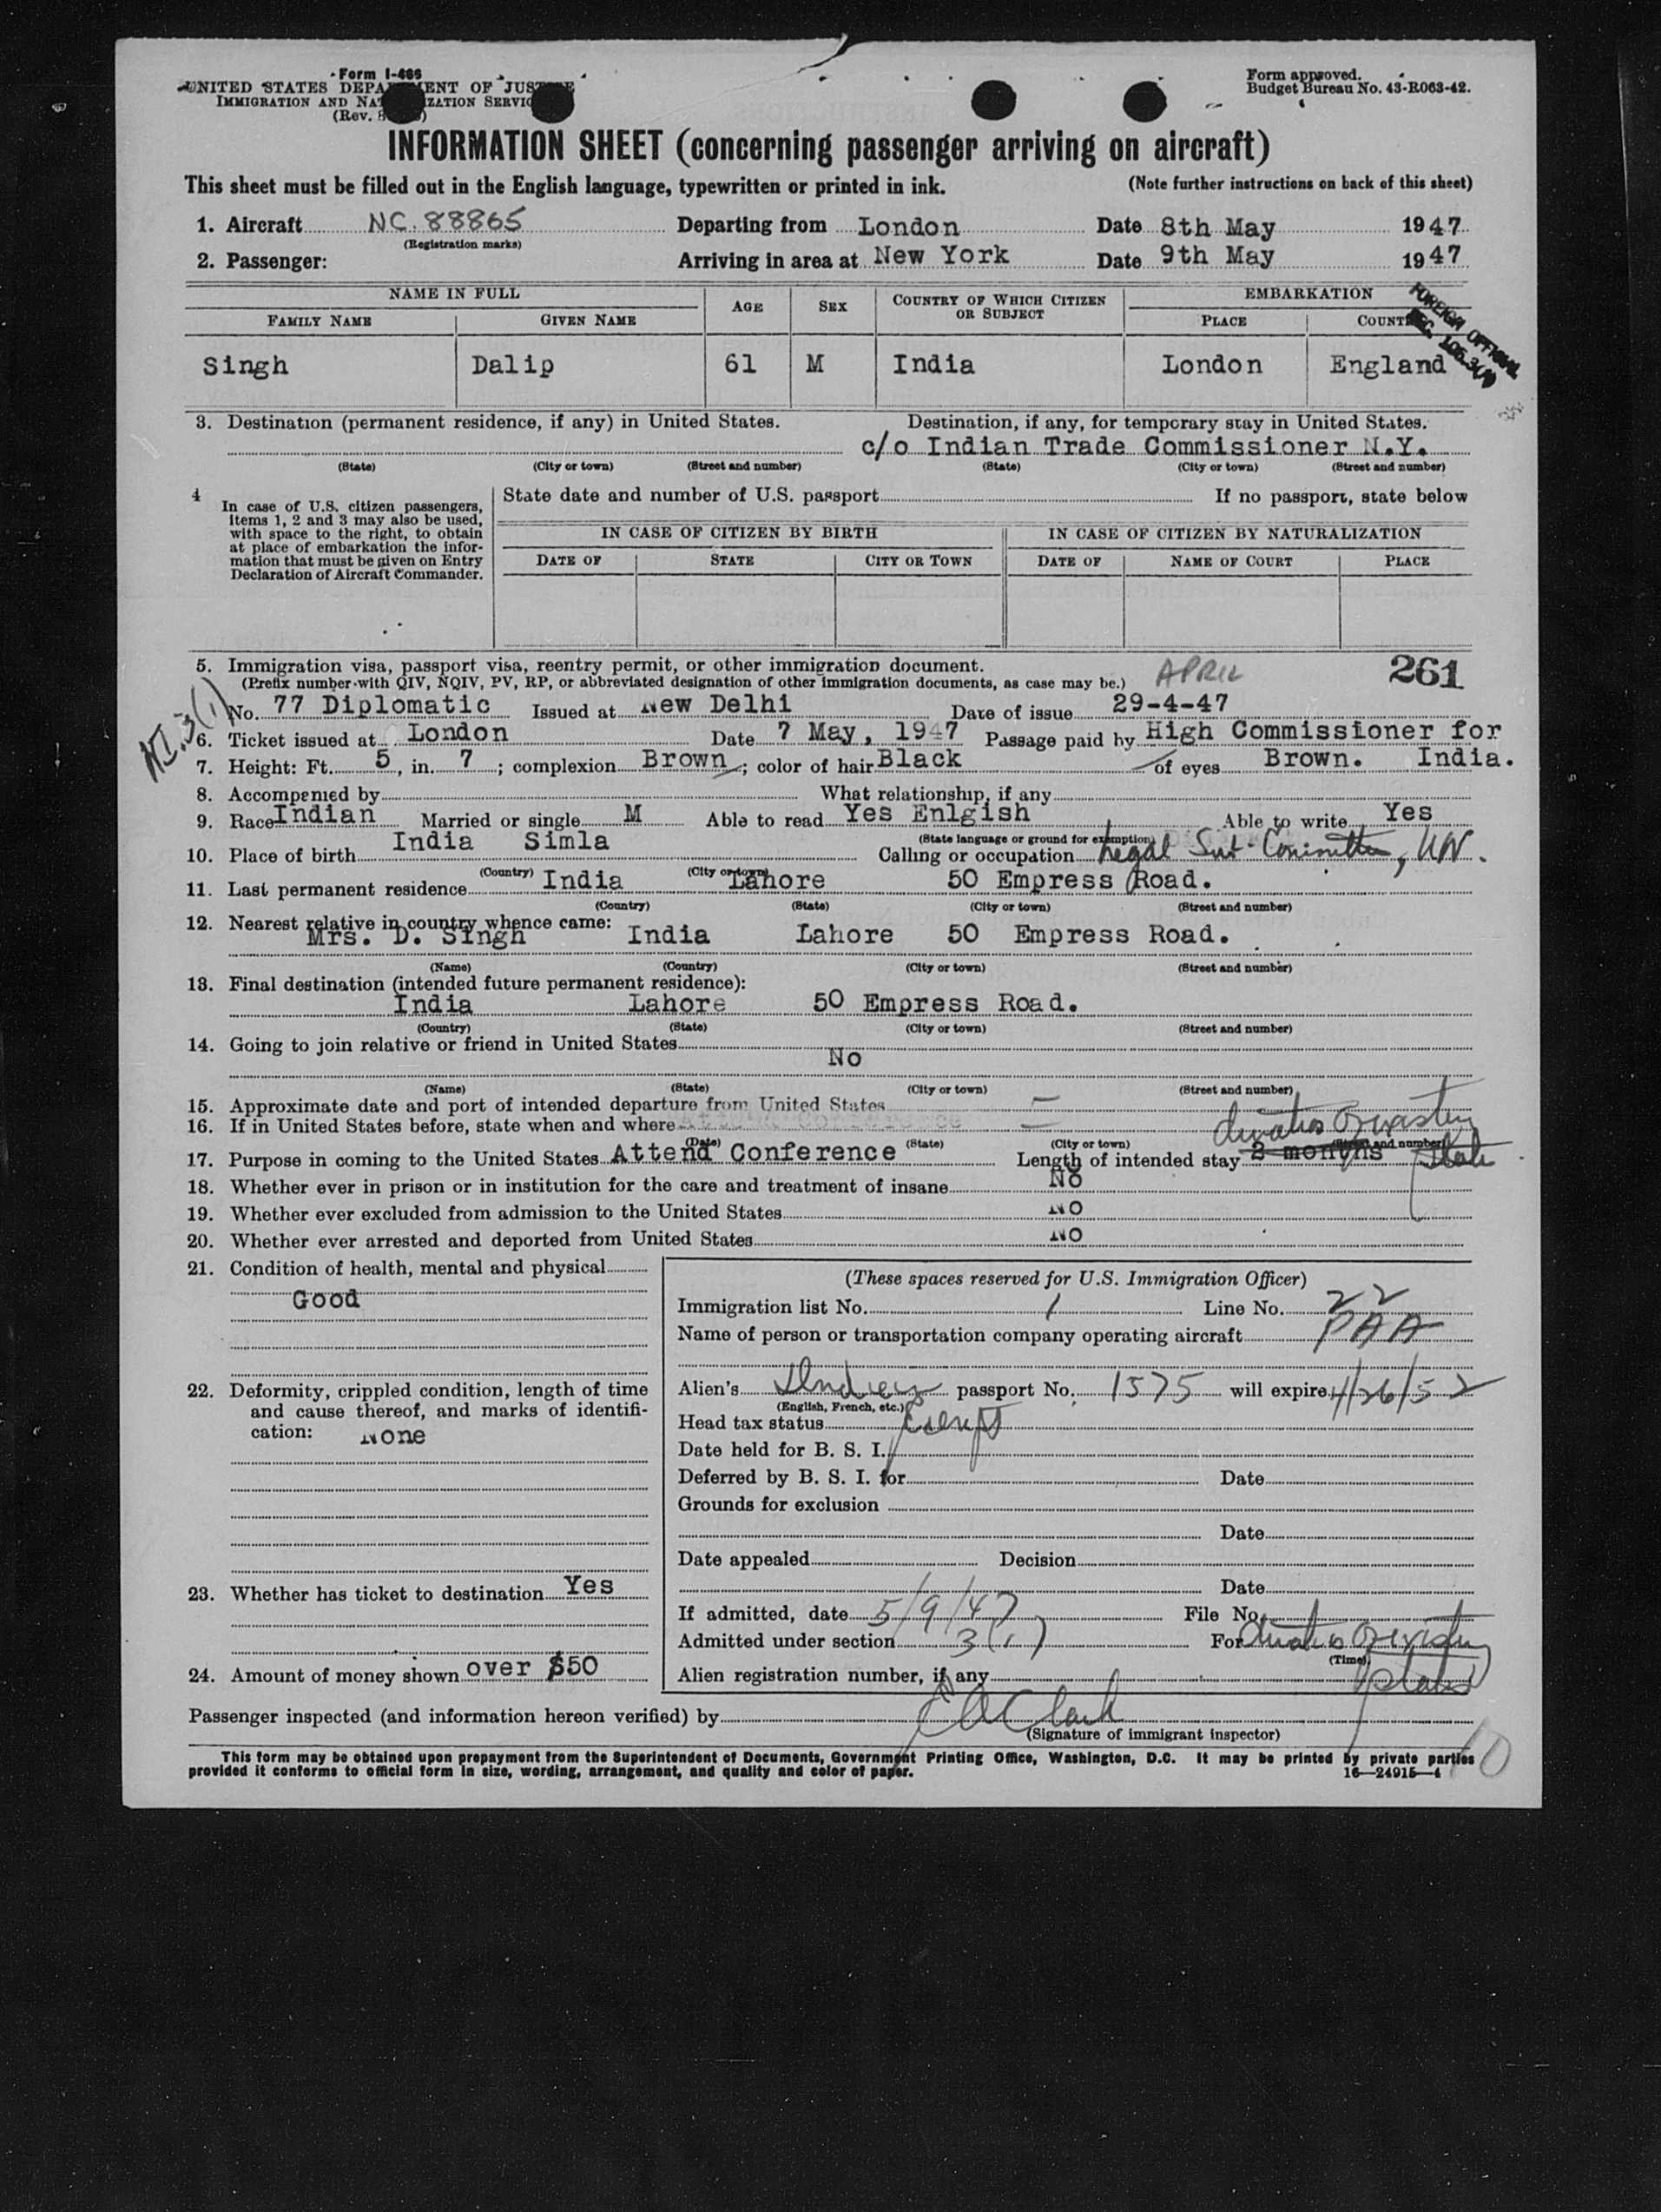 Form I-466
UNITED STATES DEPA ENT OF JUS E
IMMIGRATION AND NA IZATION SERVIC
(Rev. 8 )
Form approved.
Budget Bureau No. 43-R063-42.
INFORMATION SHEET (concerning passenger arriving on aircraft)
This sheet must be filled out in the English language, typewritten or printed in ink. (Note further instructions on back of this sheet)
1. Aircraft NC. 88865 Departing from London Date 8th May 1947
(Registration marks)
2. Passenger: Arriving in area at New York Date 9th May 1947
NAME IN FULL AGE SEX COUNTRY OF WHICH CITIZEN OR SUBJECT EMBARKATION
FAMILY NAME GIVEN NAME PLACE COUNT
FOREIGN OFFICIAL
SEC. 105.3(A)
Singh Dalip 61 M India London England
3. Destination (permanent residence, if any) in United States. Destination, if any, for temporary stay in United States.
c/o Indian Trade Commissioner N.Y.
(State) (City or town) (Street and number) (State) (City or town) (Street and number)
4 In case of U.S. citizen passengers, items 1, 2 and 3 may also be used, with space to the right, to obtain at place of embarkation the information that must be given on Entry Declaration of Aircraft Commander.
State date and number of U.S. passport If no passport, state below
IN CASE OF CITIZEN BY BIRTH IN CASE OF CITIZEN BY NATURALIZATION
DATE OF STATE CITY OR TOWN DATE OF NAME OF COURT PLACE
5. Immigration visa, passport visa, reentry permit, or other immigration document. APRIL 261
(Prefix number with QIV, NQIV, PV, RP, or abbreviated designation of other immigration documents, as case may be.)
NI. 3(1)
No. 77 Diplomatic Issued at New Delhi Date of issue 29-4-47
6. Ticket issued at London Date 7 May, 1947 Passage paid by High Commissioner for
7. Height: Ft. 5, in. 7; complexion Brown; color of hair Black of eyes Brown. India.
8. Accompenied by What relationship, if any
9. Race Indian Married or single M Able to read Yes Enlgish Able to write Yes
(State language or ground for exemption)
10. Place of birth India Simla Calling or occupation Legal Sub-Committee, UN.
(Country) (City or town)
11. Last permanent residence India Lahore 50 Empress Road.
(Country) (State) (City or town) (Street and number)
12. Nearest relative in country whence came:
Mrs. D. Singh India Lahore 50 Empress Road.
(Name) (Country) (City or town) (Street and number)
13. Final destination (intended future permanent residence):
India Lahore 50 Empress Road.
(Country) (State) (City or town) (Street and number)
14. Going to join relative or friend in United States
No
(Name) (State) (City or town) (Street and number)
15. Approximate date and port of intended departure from United States
16. If in United States before, state when and where
(Date) (State) (City or town) (Street and number)
17. Purpose in coming to the United States Attend Conference Length of intended stay 2 months duration of existing status
18. Whether ever in prison or in institution for the care and treatment of insane No
19. Whether ever excluded from admission to the United States NO
20. Whether ever arrested and deported from United States NO
21. Condition of health, mental and physical
Good
22. Deformity, crippled condition, length of time and cause thereof, and marks of identification: None
23. Whether has ticket to destination Yes
24. Amount of money shown over $50
(These spaces reserved for U.S. Immigration Officer)
Immigration list No. 1 Line No. 22
Name of person or transportation company operating aircraft PAA
Alien's Indian passport No. 1575 will expire 4/26/52
(English, French, etc.)
Head tax status Exempt
Date held for B. S. I.
Deferred by B. S. I. for Date
Grounds for exclusion
Date
Date appealed Decision
Date
If admitted, date 5/9/47 File No.
Admitted under section 3(1) For duration of existing status
(Time)
Alien registration number, if any
Passenger inspected (and information hereon verified) by E A Clark
(Signature of immigrant inspector)
This form may be obtained upon prepayment from the Superintendent of Documents, Government Printing Office, Washington, D.C. It may be printed by private parties
provided it conforms to official form in size, wording, arrangement, and quality and color of paper. 16—24915—4
10